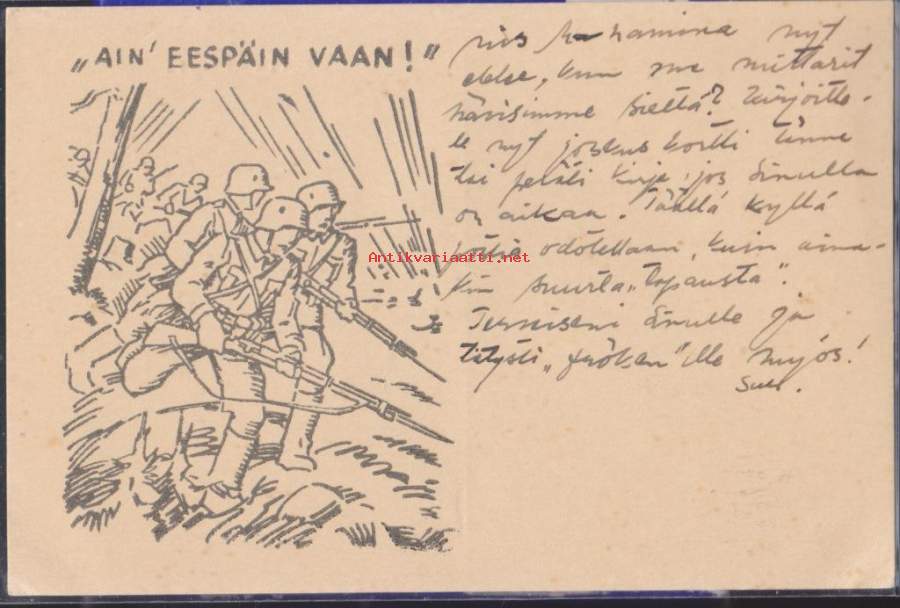 „AIN' EESPÄIN VAAN!"
nyt
kun me mittarit
hävisimme sieltä? Kirjoitte-
le nyt joskus kortti tänne
tai peräti kirje, jos Sinulla
on aikaa. Täällä kyllä
odotellaan, kuin aina-
kin suurta „tapausta".
Terveiseni Sinulle ja
„fröken"ille myös!
Antikvariaatti.net